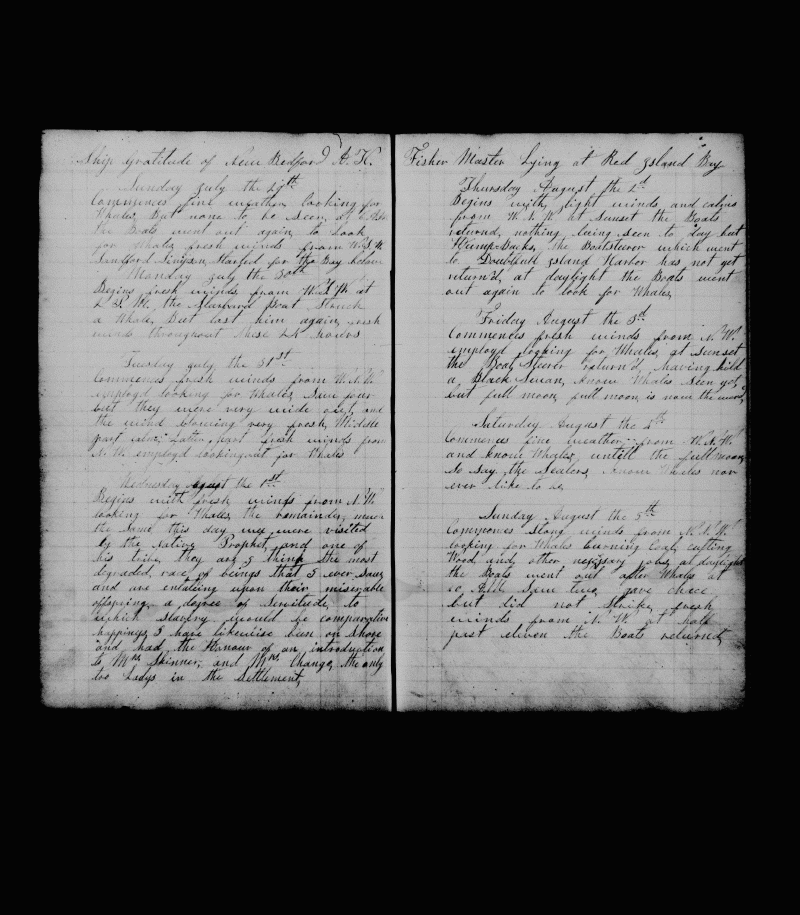 Ship Gratitude of New Bedford A. H.
Sunday July the 29th
Commences fine weather, looking for
Whales, But none to be seen, at
the Boats went out again, to Look
for Whales, fresh winds from W.S.W.
Sandford Simpson, Started for the Bay below
Monday July the 30th
Begins fresh winds, from at
the Starboard Boat Struck
a Whale, But Lost him again, fresh
winds throughout these 24 hours
Tuesday July the 31st
Commences fresh winds from W.N.W.
employd looking for Whales, Saw four
but they were very wide out, and
the wind blowing very fresh, Middle
part calm, Latter part fresh winds from
N.W. employd looking out for Whales
Wednesday August the 1st
Begins with fresh winds from N.W.
looking for Whales, the remainder, near
the Same this day we were visited
by the Native Prophet, and one of
his tribe, they are I think the most
degraded, race of beings that I ever Saw,
and are entaling upon their miserable
offspring, a degree of Servitude, to
which Slavery would be comparative
happiness, I have likewise been on Shore
and had the Honour of an introduction
to Mrs Skinner, and Mrs. Change, the only
two Ladys in the Settlement,
Fisher Master Lying at Red Island Bay
Thursday August the 2d
Begins with light winds and calms
from W.N.W. at Sunset the Boats
returned, nothing being seen to day but
Hump-Backs, the Boatsteerer which went
to Doubtfull Island Harbor has not yet
return'd, at daylight the Boats went
out again to look for Whales,
Friday August the 3d
Commences fresh winds from N.W.
employd looking for Whales, at Sunset
the Boat Steerer return'd, having killd
a Black Swan, know Whales Seen yet,
but full moon, full moon, is now the word,
Saturday August the 4th
Commences fine weather from W.N.W.
and know Whales, untill the full moon,
So Say, the Sealers, know Whales nor
ever like to be,
Sunday August the 5th
Commences Stong winds from N.N.W.
looking for Whales burning Coal, cutting
Wood and other necissary jobs, at daylight
the Boats went out after Whales at
10, A.M. Saw two, gave chace
but did not Strike, fresh
winds from N.W. at half
past eleven the Boats returned,